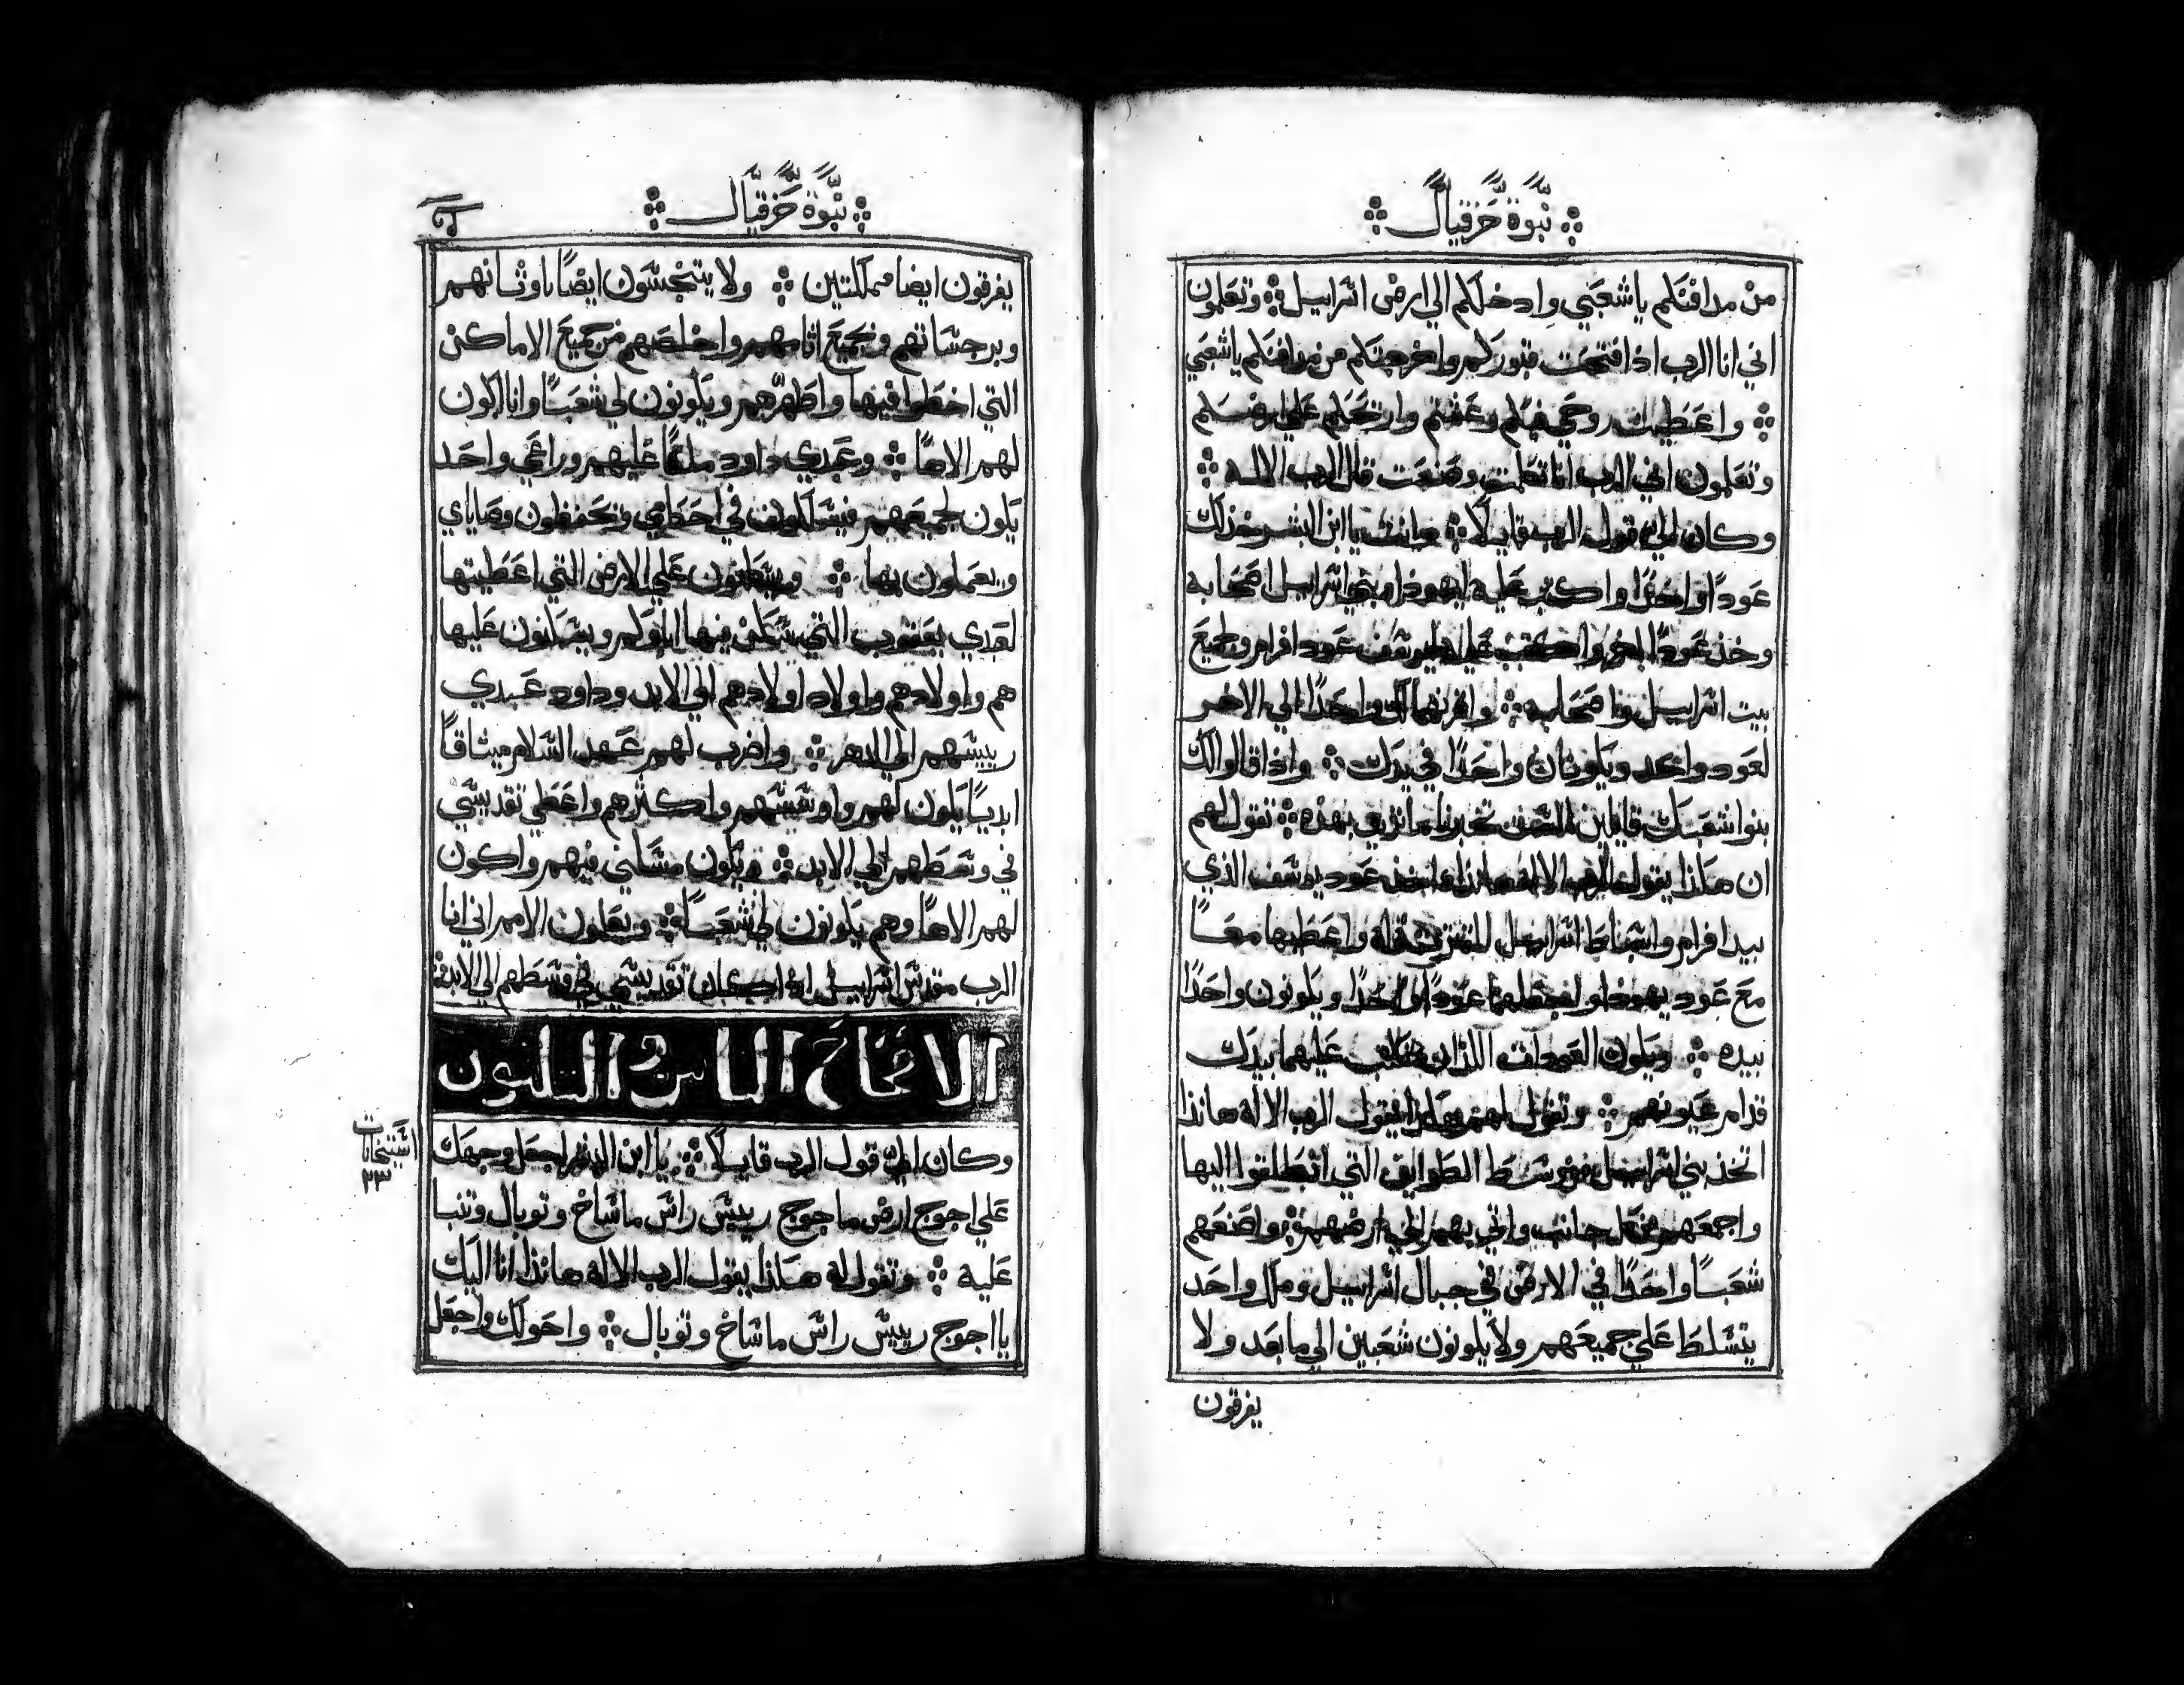 نبوة حزقيال
من مدافنكم ياشعبي وادخلكم الي ارض اسراييل وتعلمون
اني انا الرب اذا فتحت قبوركم واخرجتكم من مدافنكم ياشعبي
واعطيت روحي فيكم وعشتم وارتحكم علي ارضكم
وتعلمون اني الرب انا تكلمت وصنعت قال الرب الاله
وكان الي قول الرب قايلا وانت يا ابن البشر خذ لك
عودا واحدا واكتب عليه ليهوذا وبني اسراييل اصحابه
وخذ عودا اخر واكتب عليه ليوسف عود افرام وجميع
بيت اسراييل واصحابه واقرنهما لك واحدا الي الاخر
لعود واحد ويكونان واحدا في يدك واذا قالوا لك
بنوا شعبك قايلين الست تخبرنا ما تريد بهذه تقول لهم
ان هكذا يقول الرب الاله هانذا اخذ عود يوسف الذي
بيد افرام واسباط اسراييل المقترنين له واعطيها معا
مع عود يهوذا واجعلهما عودا واحدا ويكونون واحدا
بيده ويكون العودان اللذان تكتب عليهما بيدك
قدام عيونهم وتقول لهم هكذا يقول الرب الاله هانذا
اتخذ بني اسراييل من وسط الطوايف التي انطلقوا اليها
واجمعهم من كل جانب واتي بهم الي ارضهم واصنعهم
شعبا واحدا في الارض في جبال اسراييل وملك واحد
يتسلط علي جميعهم ولا يكونون شعبين الي ما بعد ولا
يفرقون
نبوة حزقيال
يفرقون ايضا مملكتين ولا يتنجسون ايضا باوثانهم
وبرجساتهم وبجميع اثامهم واخلصهم من جميع الاماكن
التي اخطوا فيها واطهرهم ويكونون لي شعبا وانا اكون
لهم الاها وعبدي داود ملكا عليهم وراعي واحد
يكون لجميعهم فيسلكون في احكامي ويحفظون وصاياي
ويعملون بها ويسكنون علي الارض التي اعطيتها
لعبدي يعقوب التي سكن فيها اباوكم ويسكنون عليها
هم واولادهم واولاد اولادهم الي الابد وداود عبدي
رييسهم الي الدهر واضرب لهم عهد السلام ميثاقا
ابديا يكون لهم واونسهم واكثرهم واعطي تقديسي
في وسطهم الي الابد ويكون مسكني فيهم واكون
لهم الاها وهم يكونون لي شعبا ويعلمون الامم اني انا
الرب مقدس اسراييل اذا كان تقديسي في وسطهم الي الابد
الاصحاح الثامن والثلثون
وكان الي قول الرب قايلا يا ابن البشر اجعل وجهك
علي اجوج ارض ماجوج رييس راس ماشاخ وتوبال وتنبا
عليه وتقول له هكذا يقول الرب الاله هانذا انا اليك
يا اجوج رييس راس ماشاخ وتوبال واحولك واجعل
٢٣